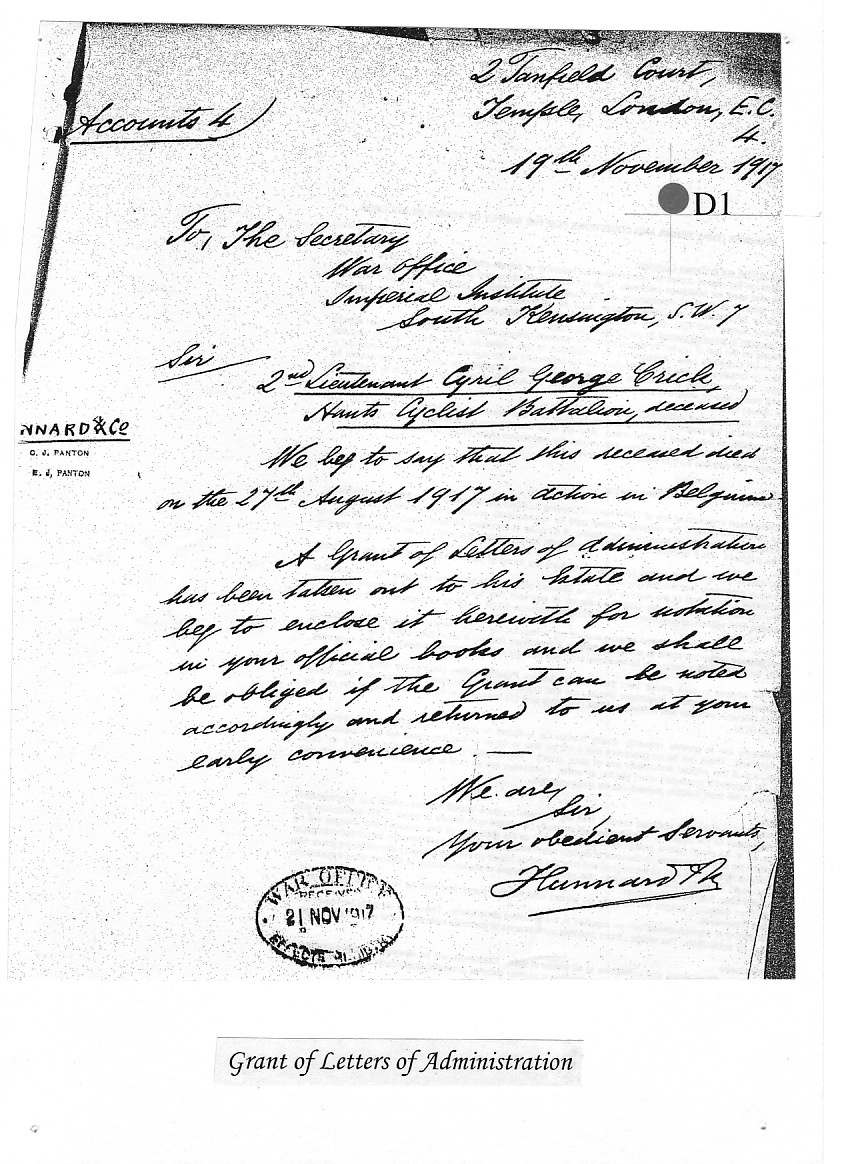 2 Tanfield Court,
Temple, London, E.C.
4.
Accounts 4
19th November 1917
D1
To, The Secretary
War Office
Imperial Institute
South Kensington, S.W. 7
Sir
2nd Lieutenant Cyril George Crick,
Hants Cyclist Battalion, deceased
NNARD & Co
C. J. PANTON
E. J. PANTON
We beg to say that this deceased died
on the 27th August 1917 in action in Belgium
A Grant of Letters of Administration
has been taken out to his Estate and we
beg to enclose it herewith for notation
in your official books and we shall
be obliged if the Grant can be noted
accordingly and returned to us at your
early convenience. —
We are,
Sir,
Your obedient Servants,
Hunnard & Co
WAR OFFICE
RECEIVED
21 NOV 1917
EFFECTS
Grant of Letters of Administration